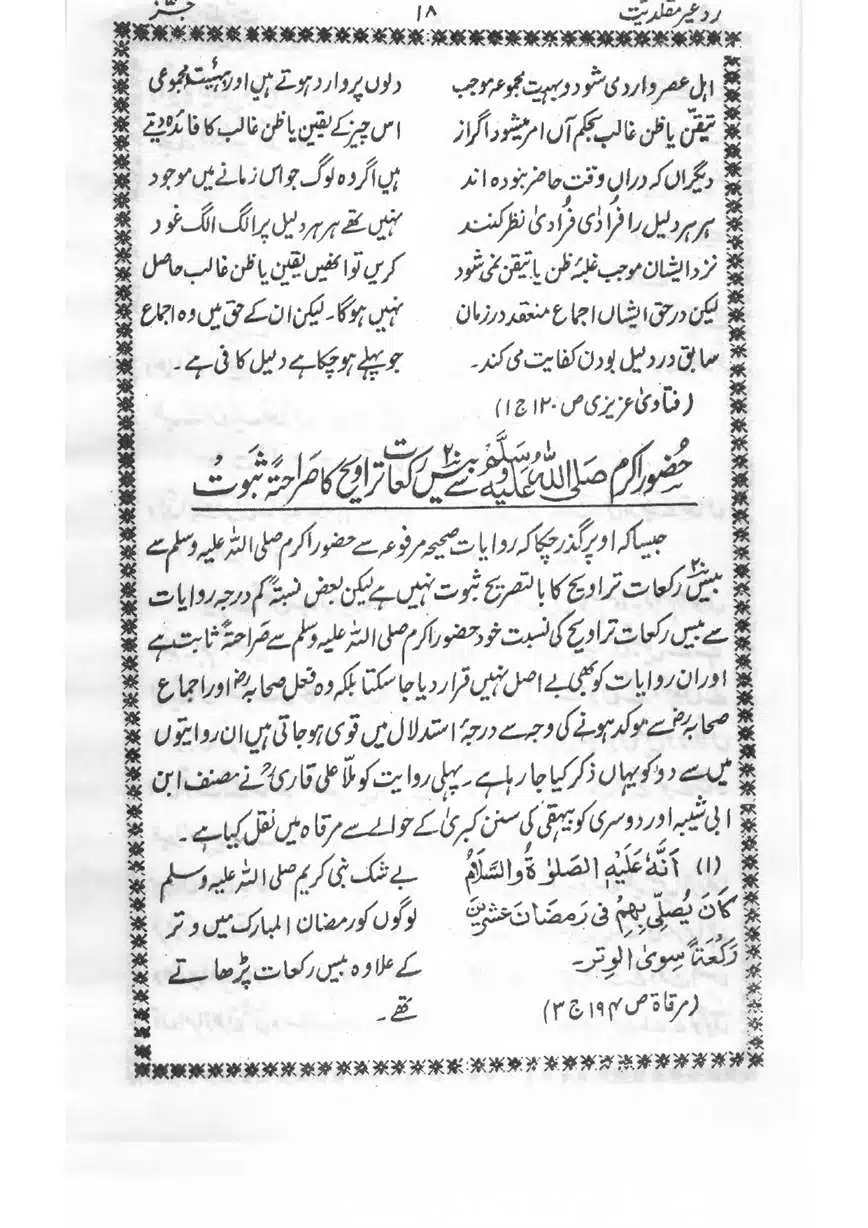 رد غیر مقلدیت ۱۸
اہل عصر وارد می شود و بہیت مجموعہ موجب
تیقن یا ظن غالب بحکم آں امر میشود اگر از
دیگراں کہ دراں وقت حاضر نبودہ اند
ہر ہر دلیل را فُرادٰی فُرادیٰ نظر کنند
نزد ایشان موجب غلبۂ ظن یا تیقن نمی شود
لیکن در حق ایشاں اجماع منعقد در زمان
سابق در دلیل بودن کفایت می کند۔
(فتاویٰ عزیزی ص ۱۲۰ ج ۱)
دلوں پر وارد ہوتے ہیں اور بہیئت مجموعی
اس چیز کے یقین یا ظن غالب کا فائدہ دیتے
ہیں اگر وہ لوگ جو اس زمانے میں موجود
نہیں تھے ہر ہر دلیل پر الگ الگ غور
کریں تو انھیں یقین یا ظن غالب حاصل
نہیں ہوگا۔ لیکن ان کے حق میں وہ اجماع
جو پہلے ہو چکا ہے دلیل کافی ہے۔
حضور اکرم صلی اللہ علیہ وسلم سے بیس ۲۰ رکعات تراویح کا صراحۃً ثبوت
جیسا کہ اوپر گذر چکا کہ روایات صحیحہ مرفوعہ سے حضور اکرم صلی اللہ علیہ وسلم سے
بیس ۲۰ رکعات تراویح کا بالتصریح ثبوت نہیں ہے لیکن بعض نسبۃً کم درجہ روایات
سے بیس رکعات تراویح کی نسبت خود حضور اکرم صلی اللہ علیہ وسلم سے صراحۃً ثابت ہے
اور ان روایات کو بھی بے اصل نہیں قرار دیا جا سکتا بلکہ وہ فعل صحابہؓ اور اجماع
صحابہؓ سے موکد ہونے کی وجہ سے درجۂ استدلال میں قوی ہو جاتی ہیں ان روایتوں
میں سے دو کو یہاں ذکر کیا جا رہا ہے۔ پہلی روایت کو ملّا علی قاریؒ نے مصنف ابن
ابی شیبہ اور دوسری کو بیہقی کی سنن کبریٰ کے حوالے سے مرقاہ میں نقل کیا ہے۔
(۱) اَنَّهٗ عَلَيْهِ الصَّلوٰةُ وَالسَّلَامُ
كَانَ يُصَلِّي بِهِمْ فِي رَمَضَانَ عِشْرِينَ
رَكْعَةً سِوَى الْوِتْرِ۔
(مرقاۃ ص ۱۹۴ ج ۳)
بے شک نبی کریم صلی اللہ علیہ وسلم
لوگوں کو رمضان المبارک میں وتر
کے علاوہ بیس رکعات پڑھاتے
تھے۔